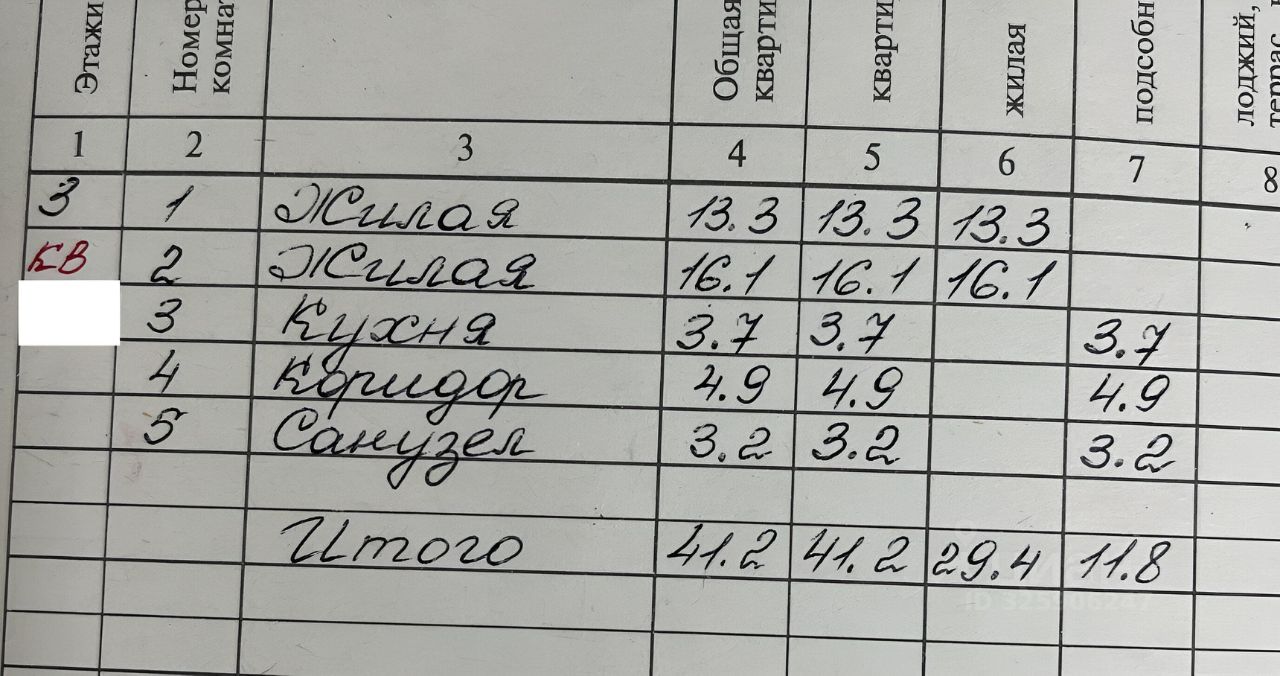 Этажи Номер комнат Общая кварти кварти жилая подсобн лоджий, террас
1 2 3 4 5 6 7 8
3 1 Жилая 13.3 13.3 13.3
КВ 2 Жилая 16.1 16.1 16.1
3 Кухня 3.7 3.7 3.7
4 Коридор 4.9 4.9 4.9
5 Санузел 3.2 3.2 3.2
Итого 41.2 41.2 29.4 11.8